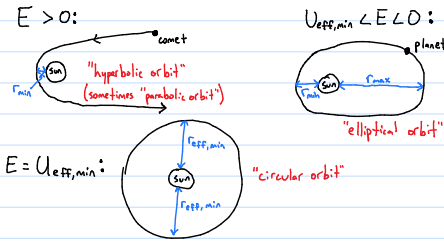 E > 0:
comet
sun
r_min
"hyperbolic orbit"
(sometimes "parabolic orbit")
U_eff,min < E < 0:
planet
r_min
sun
r_max
"elliptical orbit"
E = U_eff,min:
r_eff,min
sun
r_eff,min
"circular orbit"